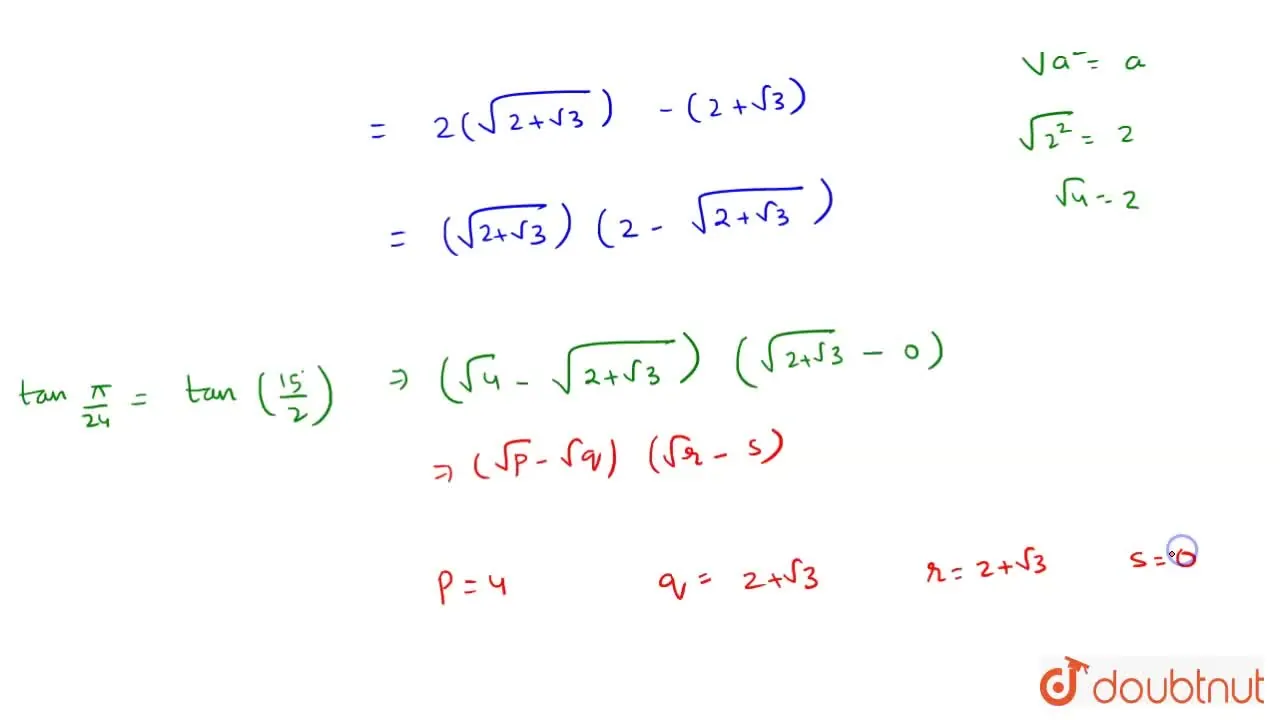 √a² = a
= 2(√(2+√3)) - (2+√3)
√2² = 2
√4 = 2
= (√(2+√3)) (2 - √(2+√3))
tan π/24 = tan (15/2) ⇒ (√4 - √(2+√3)) (√(2+√3) - 0)
⇒ (√p - √q) (√r - s)
p = 4 q = 2+√3 r = 2+√3 s = 0
doubtnut